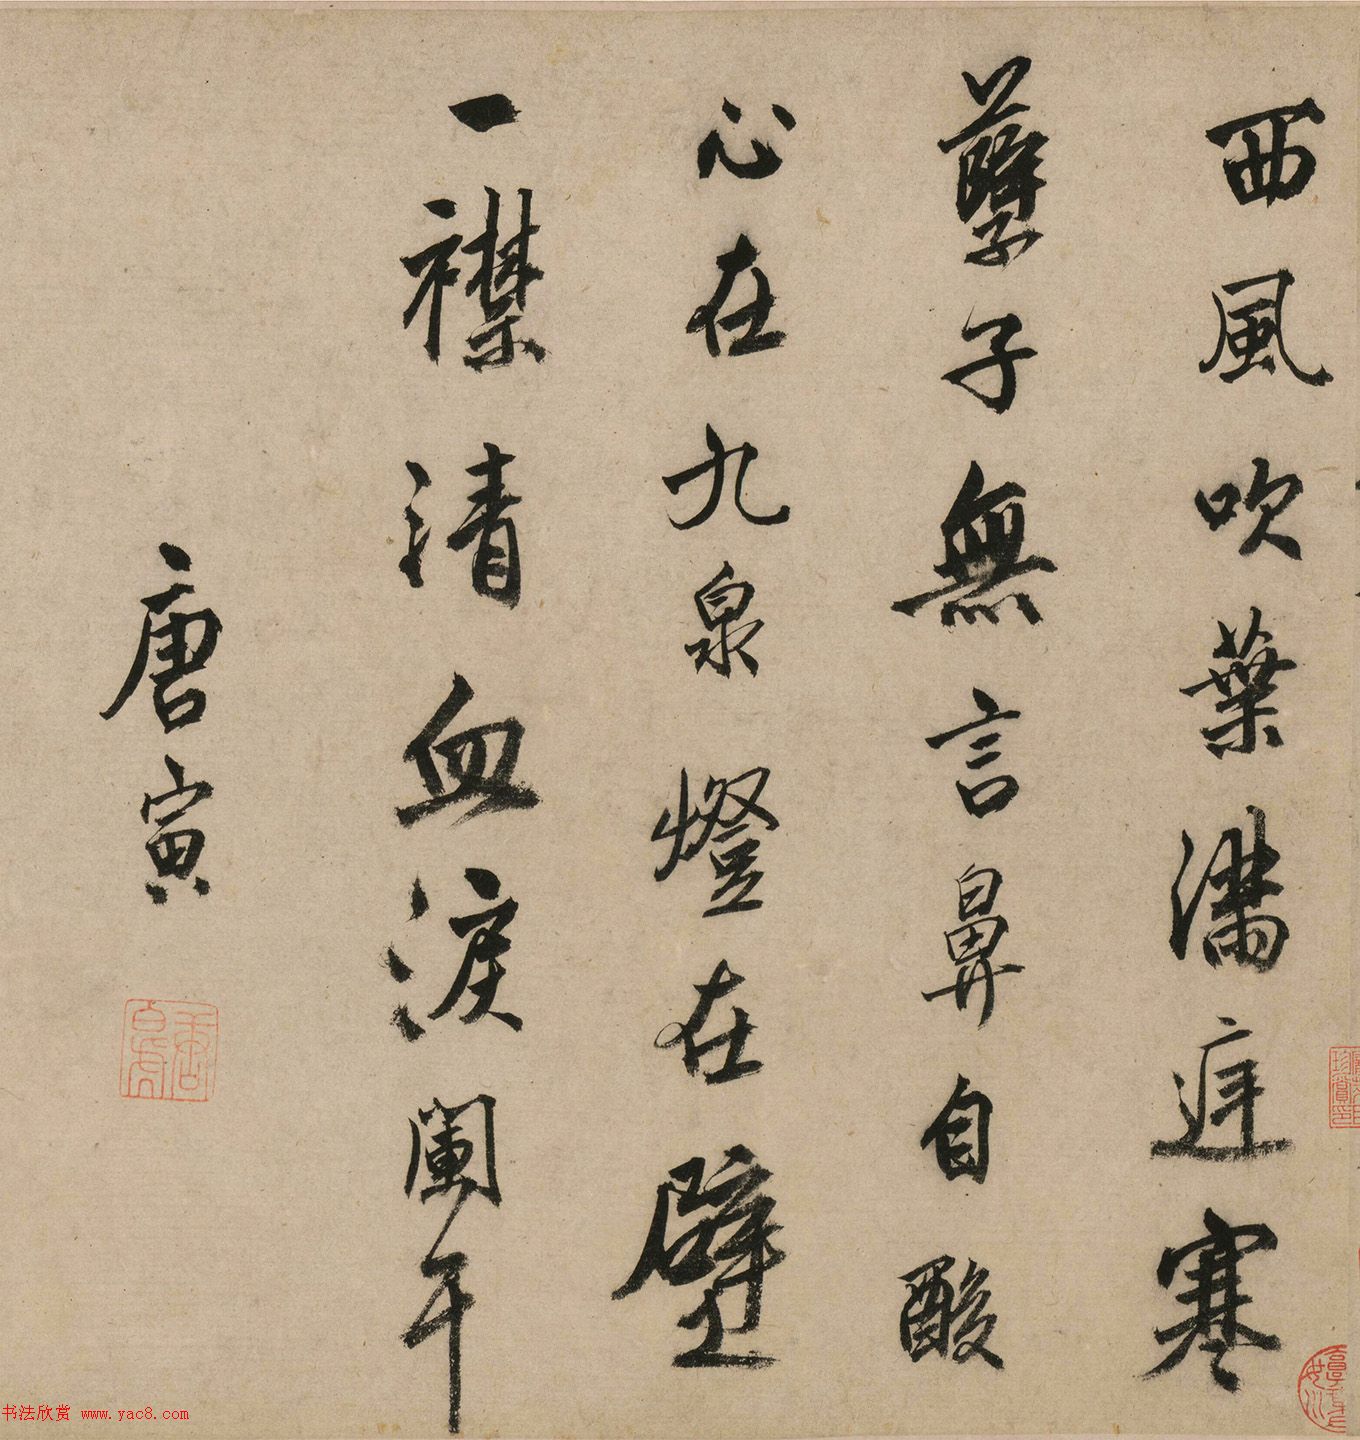 西風吹葉滿庭寒
孽子無言鼻自酸
心在九泉燈在壁
一襟清血淚闌干
唐寅
唐白虎
書法欣賞 www.yac8.com